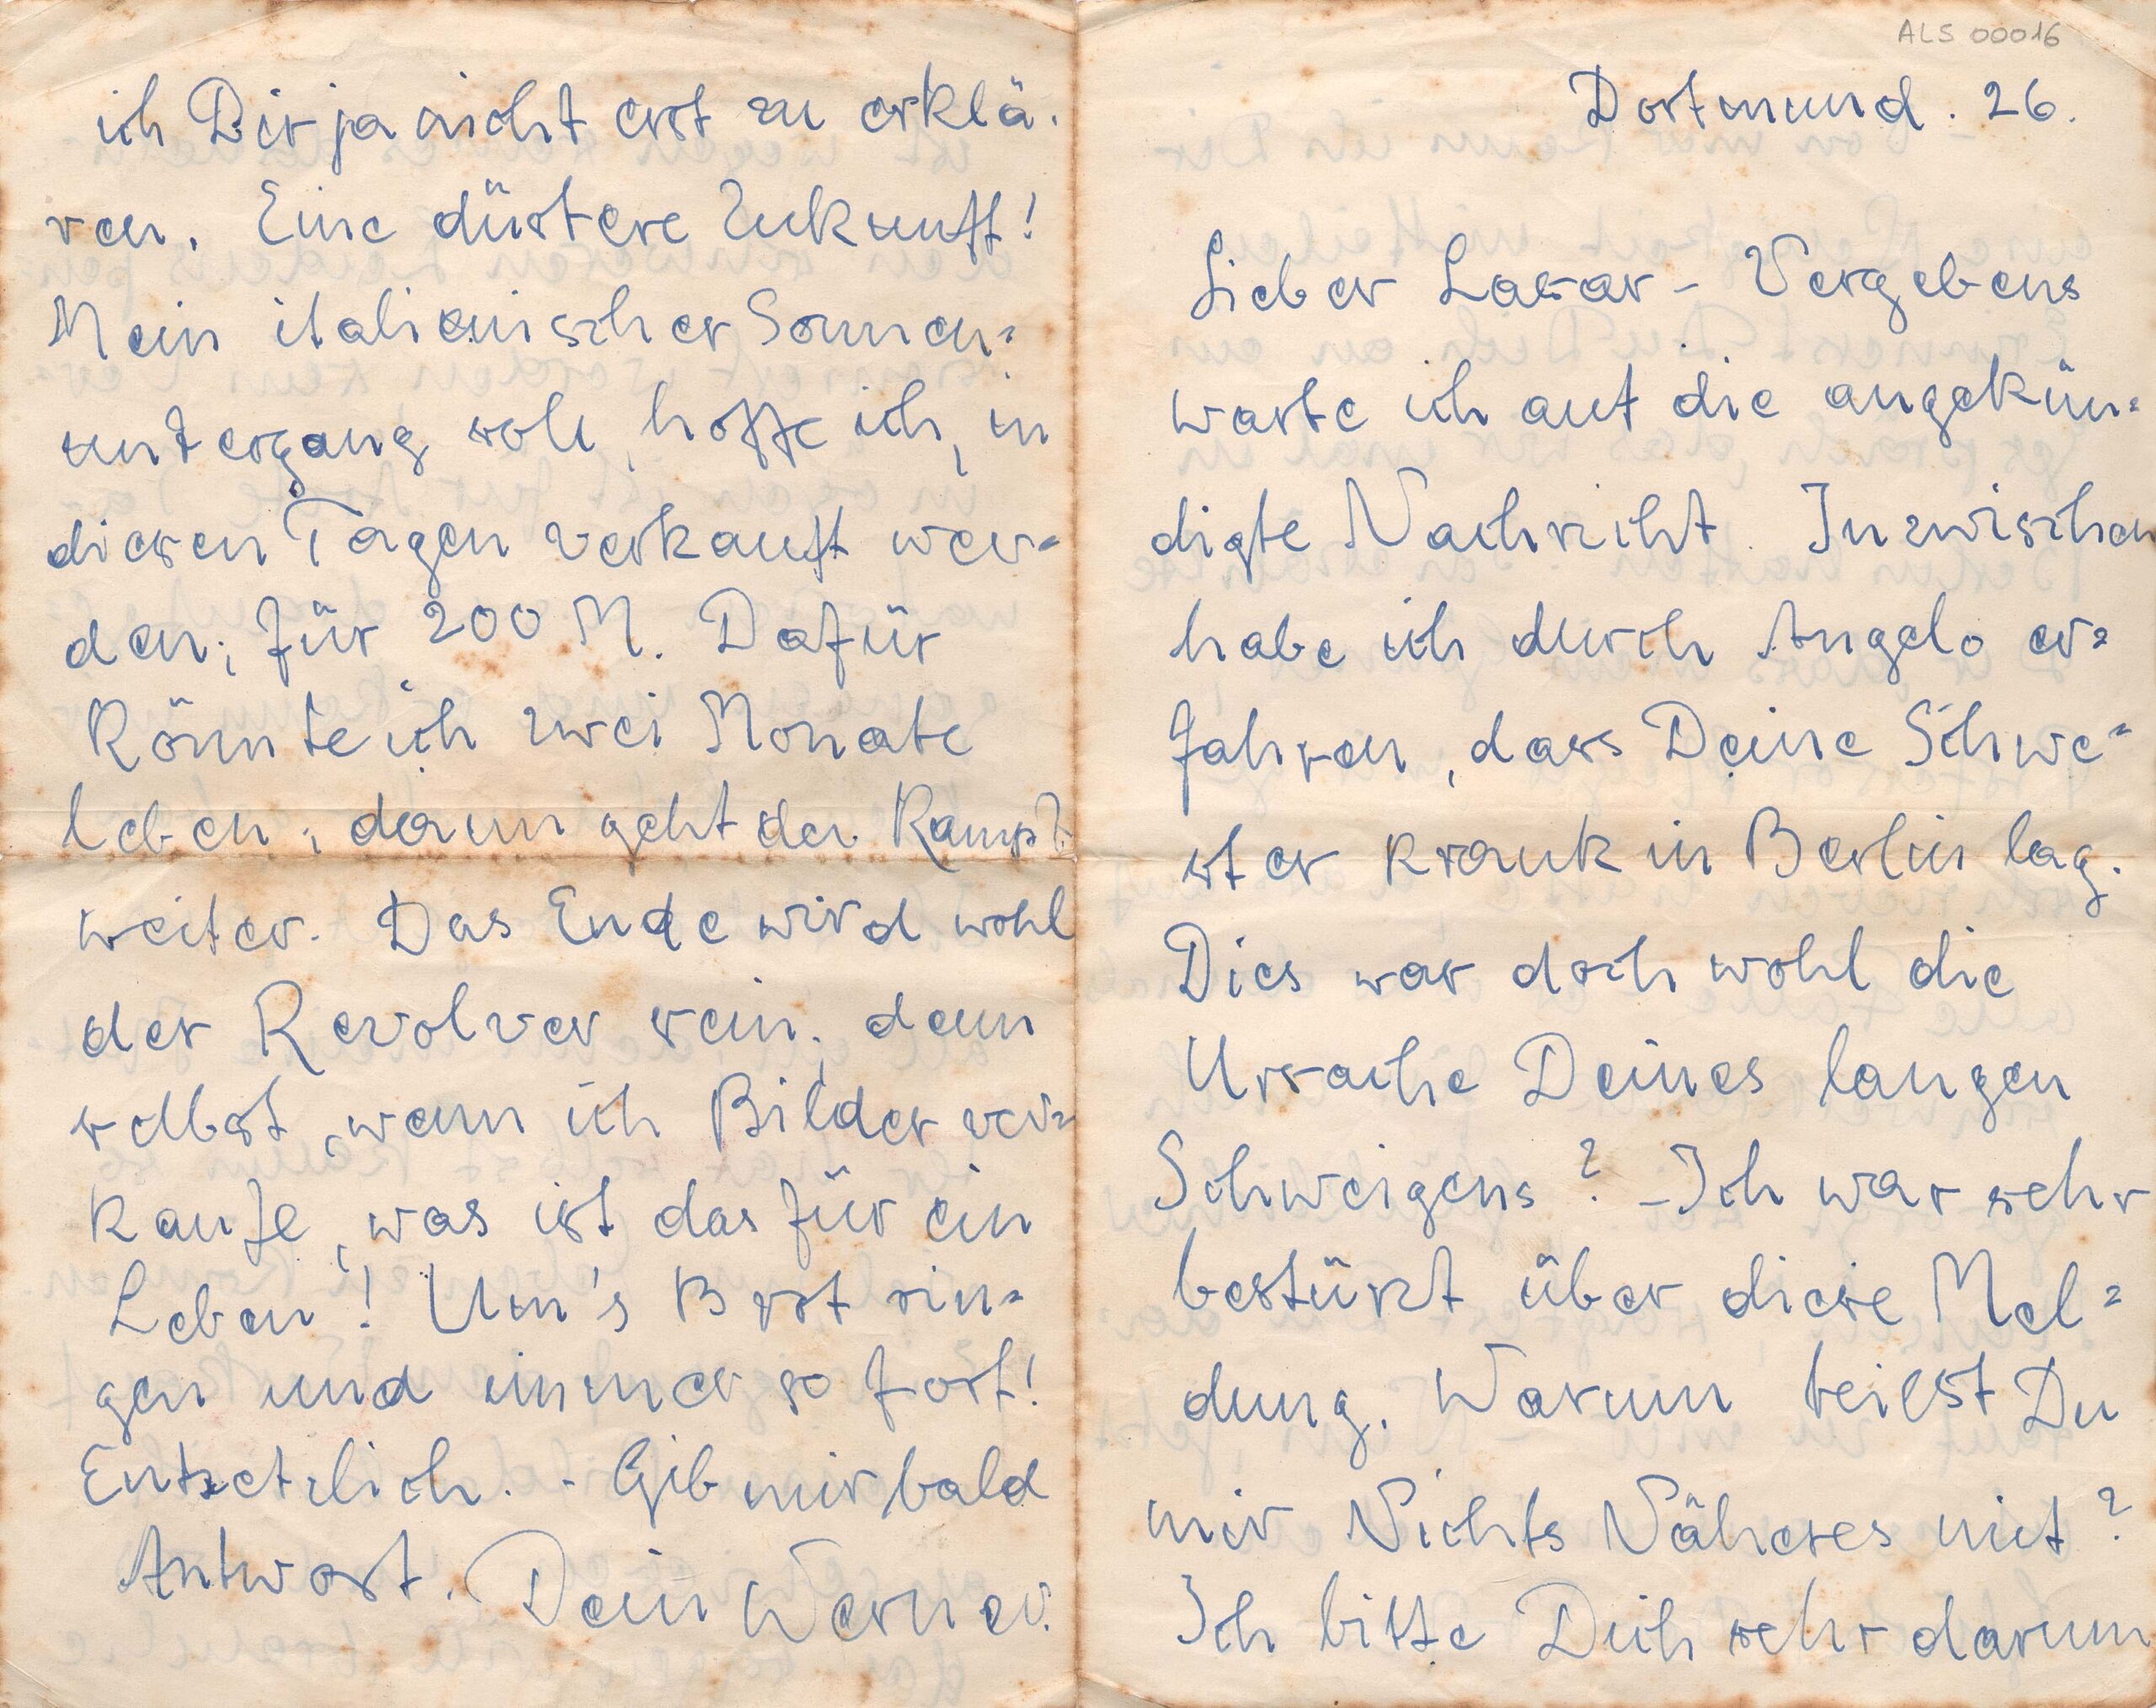 ALS 00016
Dortmund. 26.
Lieber Lasar - Vergebens
warte ich auf die angekün=
digte Nachricht. Inzwischen
habe ich durch Angelo er=
fahren, dass Deine Schwe=
ster krank in Berlin lag.
Dies war doch wohl die
Ursache Deines langen
Schweigens? - Ich war sehr
bestürzt über diese Mel=
dung. Warum teilst Du
mir Nichts Näheres mit?
Ich bitte Dich sehr darum
ich Dir ja nicht erst zu erklä-
ren. Eine düstere Zukunft!
Mein italienischer Sonnen=
untergang soll, hoffe ich, in
diesen Tagen verkauft wer=
den; für 200 M. Dafür
könnte ich zwei Monate
leben; dann geht der Kampf
weiter. Das Ende wird wohl
der Revolver sein; denn
selbst, wenn ich Bilder ver=
kaufe, was ist das für ein
Leben! Um's Brot rin=
gen und immer so fort!
Entsetzlich. - Gib mir bald
Antwort. Dein Werner.